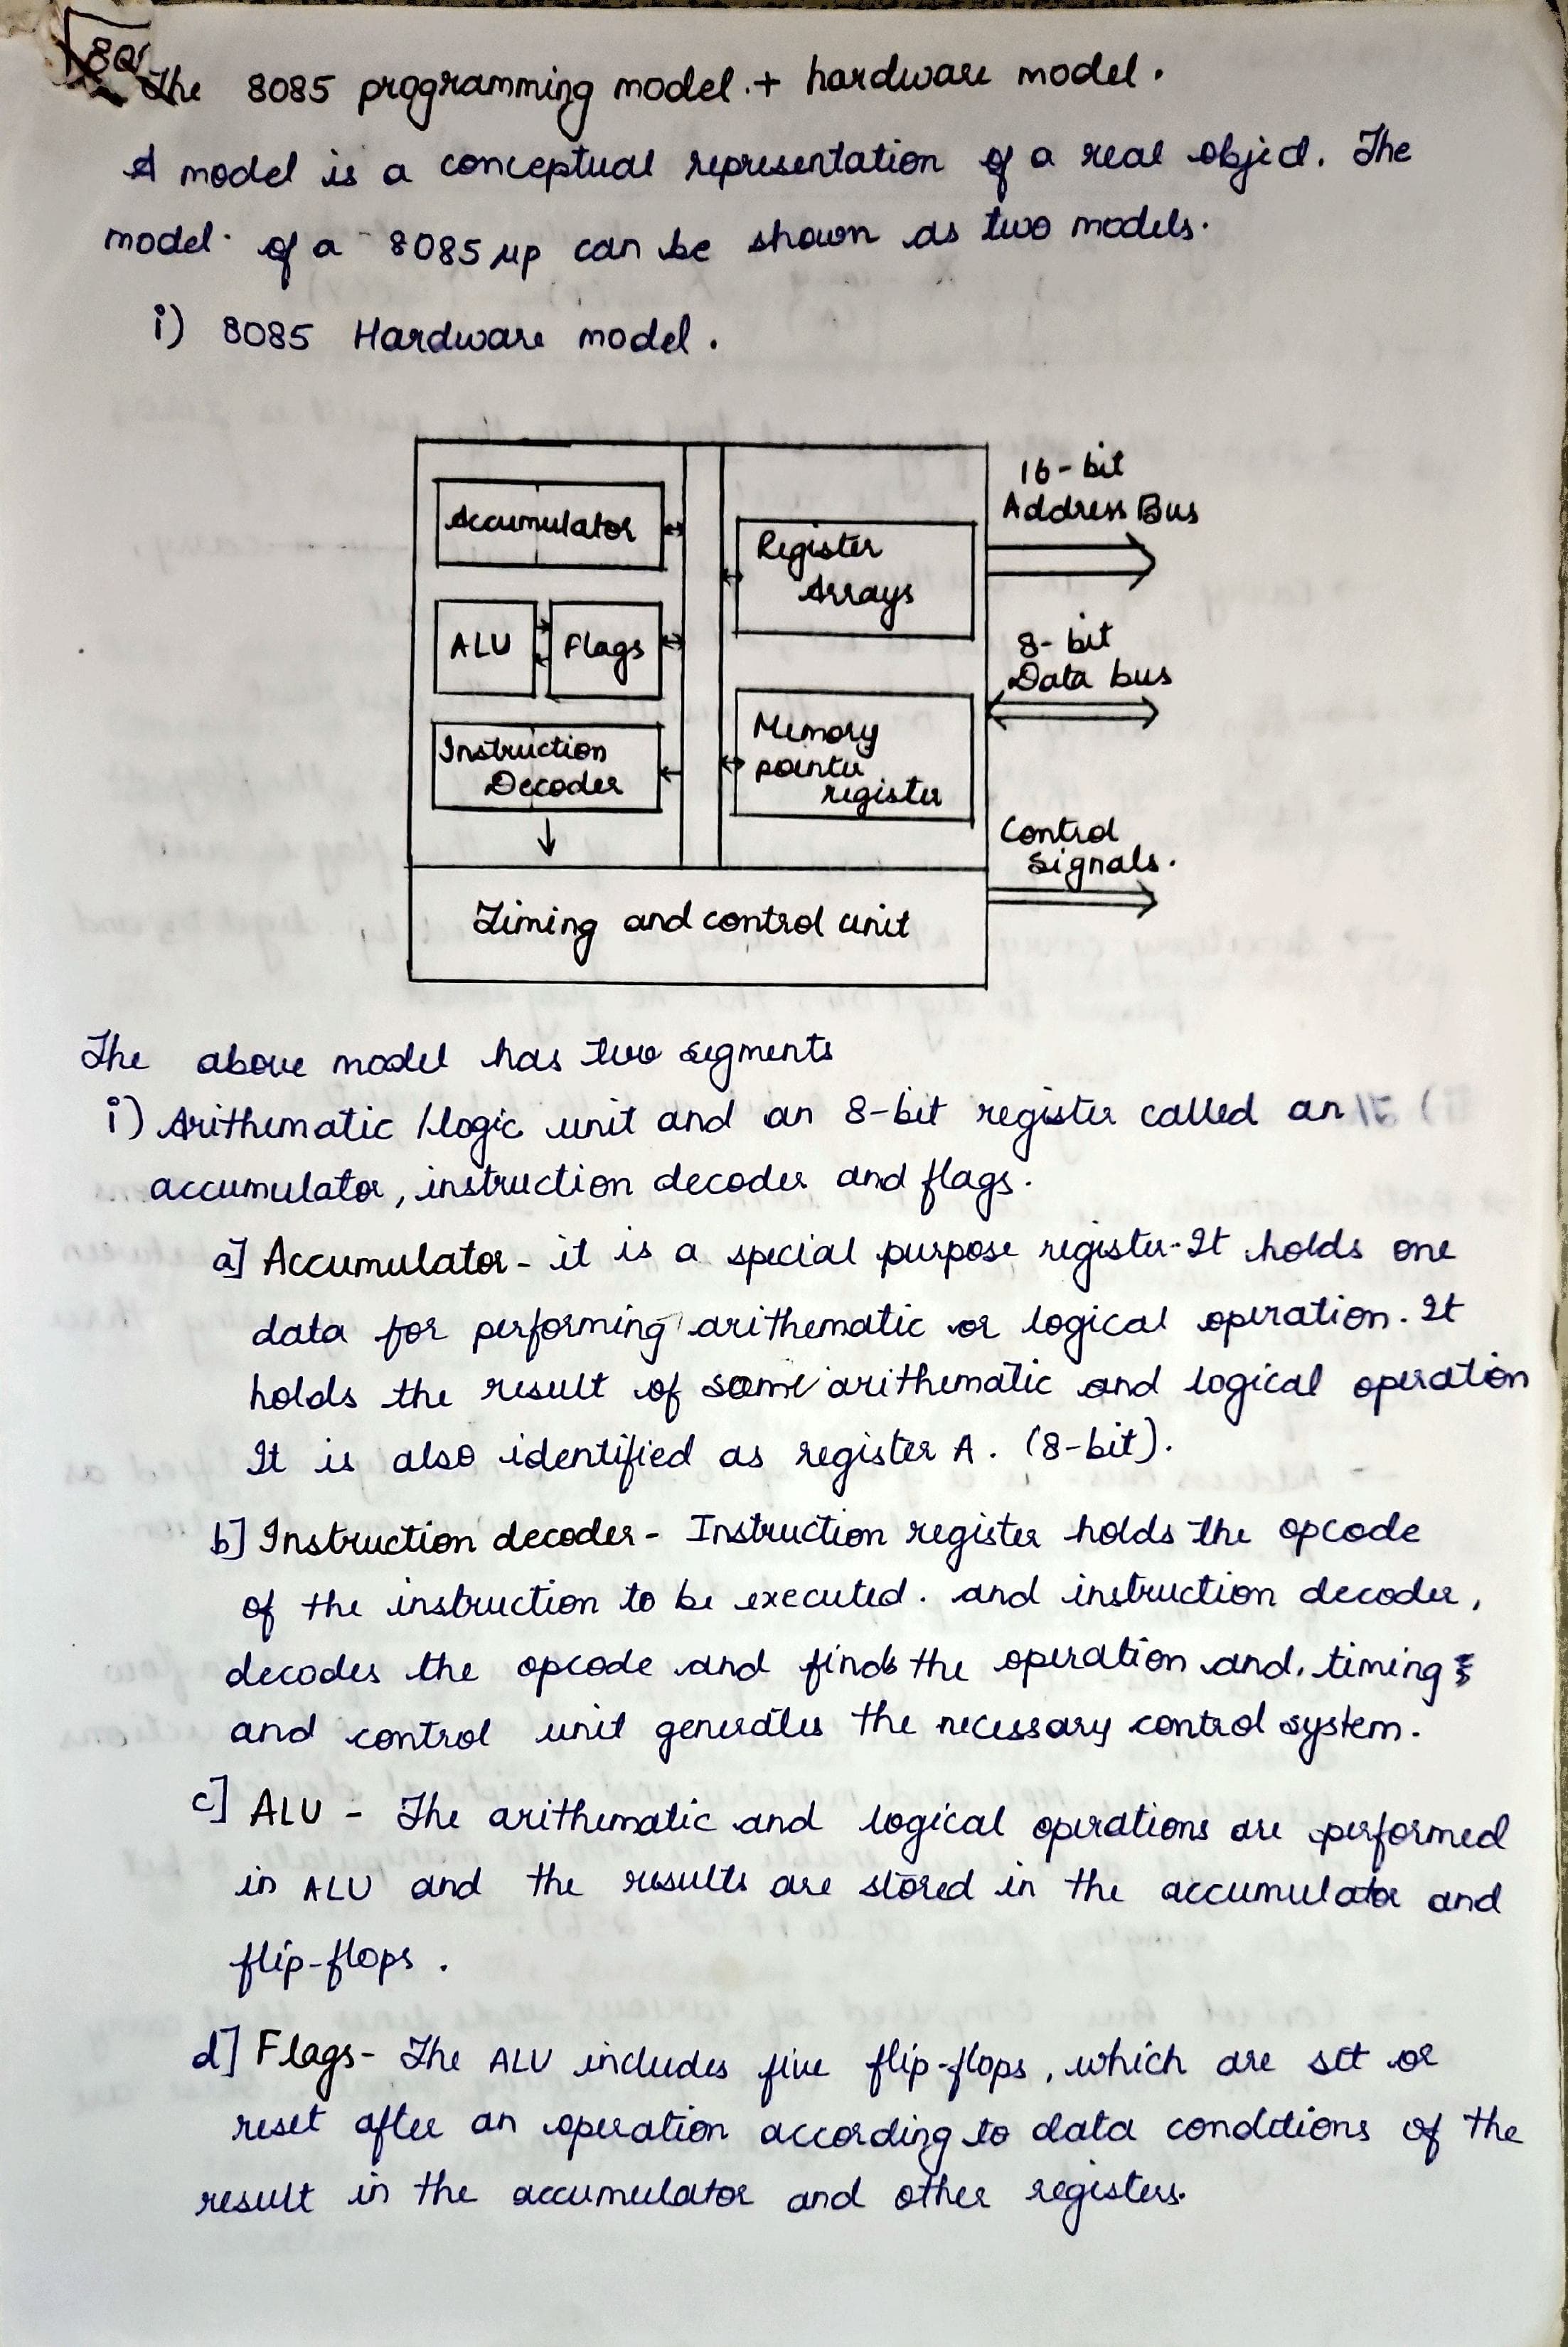 8Q
The 8085 programming model. + hardware model.
A model is a conceptual representation of a real object. The
model of a 8085 μp can be shown as two models.
i) 8085 Hardware model.
16-bit
Address Bus
Accumulator
Register
Arrays
ALU
Flags
8-bit
Data bus
Instruction
Decoder
Memory
pointer
register
Control
Signals.
Timing and control unit
The above model has two segments
i) Arithematic / logic unit and an 8-bit register called an
accumulator, instruction decoder and flags.
a] Accumulator - it is a special purpose register. It holds one
data for performing arithematic or logical operation. It
holds the result of some arithematic and logical operation
It is also identified as register A. (8-bit).
b] Instruction decoder - Instruction register holds the opcode
of the instruction to be executed. and instruction decoder,
decodes the opcode and finds the operation and, timing
and control unit generates the necessary control system.
c] ALU - The arithematic and logical operations are performed
in ALU and the results are stored in the accumulator and
flip-flops.
d] Flags - The ALU includes five flip-flops, which are set or
reset after an operation according to data conditions of the
result in the accumulator and other registers.